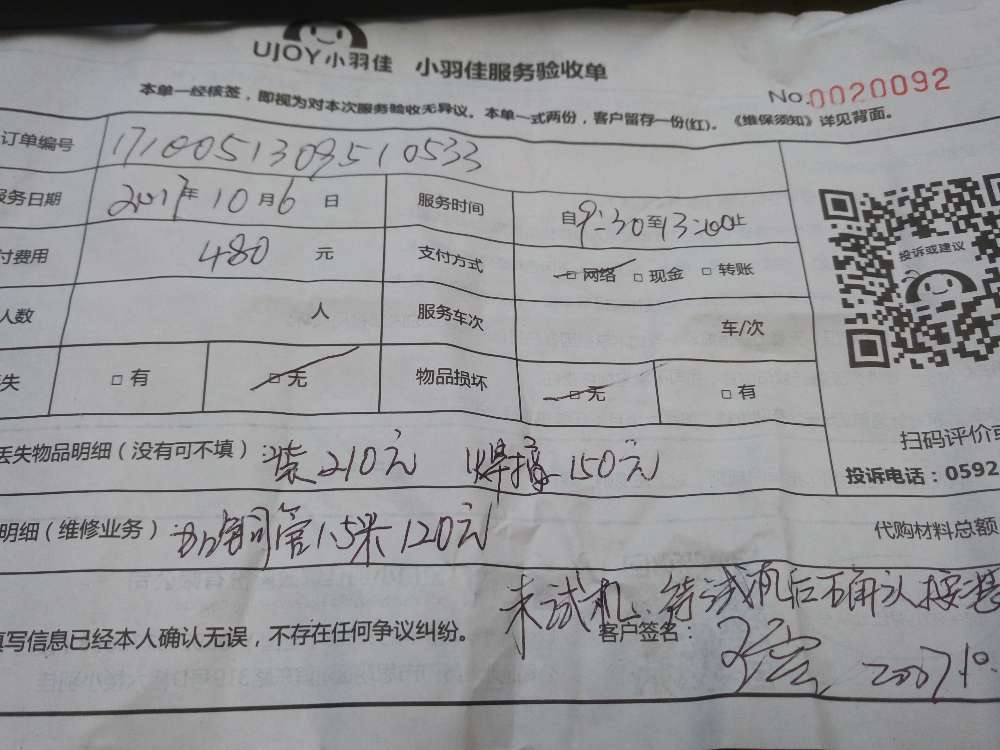 UJOY小羽佳 小羽佳服务验收单
No.0020092
本单一经核签，即视为对本次服务验收无异议。本单一式两份，客户留存一份(红)。《维保须知》详见背面。
订单编号 171005130951 0533
服务日期 2017年10月6日 服务时间 自9:30至13:00止
付费用 480 元 支付方式 □网络 □现金 □转账
人数 人 服务车次 车/次
失 □有 □无 物品损坏 □无 □有
投诉或建议
扫码评价或
投诉电话：0592
丢失物品明细（没有可不填）：装210元 焊接150元
明细（维修业务）加铜管1.5米120元
代购材料总额
未试机，待试机后确认接
填写信息已经本人确认无误，不存在任何争议纠纷。 客户签名：